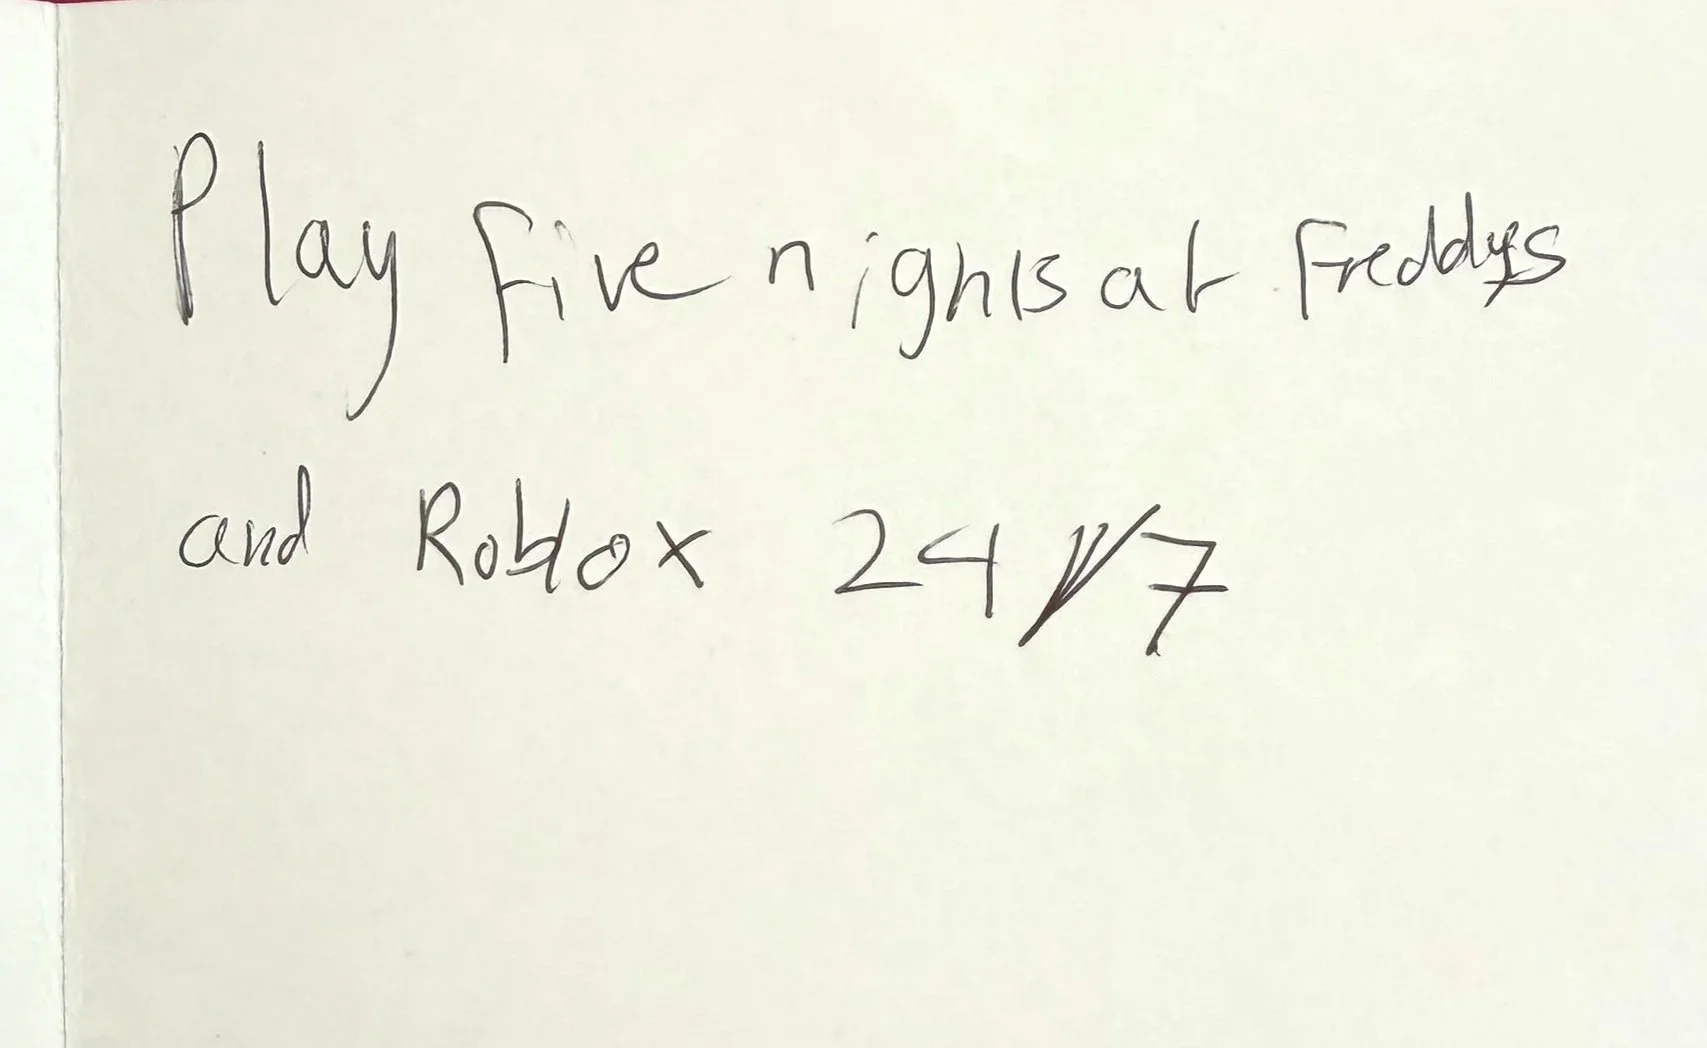 Play Five nights at Freddys
and Roblox 24/7